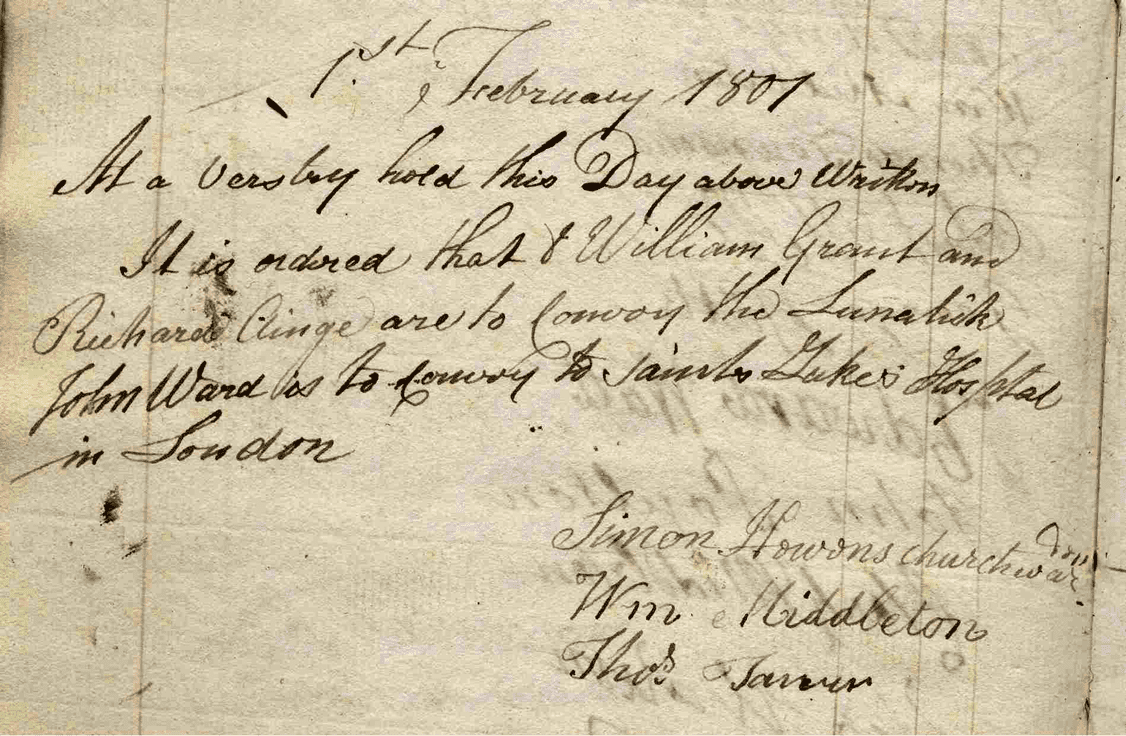 1.st February 1801
At a Verstry hold this Day above Writton
It is ordred that & William Grant and
Richard Clinge are to Convoy the Lunatick
John Ward is to Convoy to saints Lukes Hosptal
in London
Simon Howons churchwarden
Wm Middleton
Thos